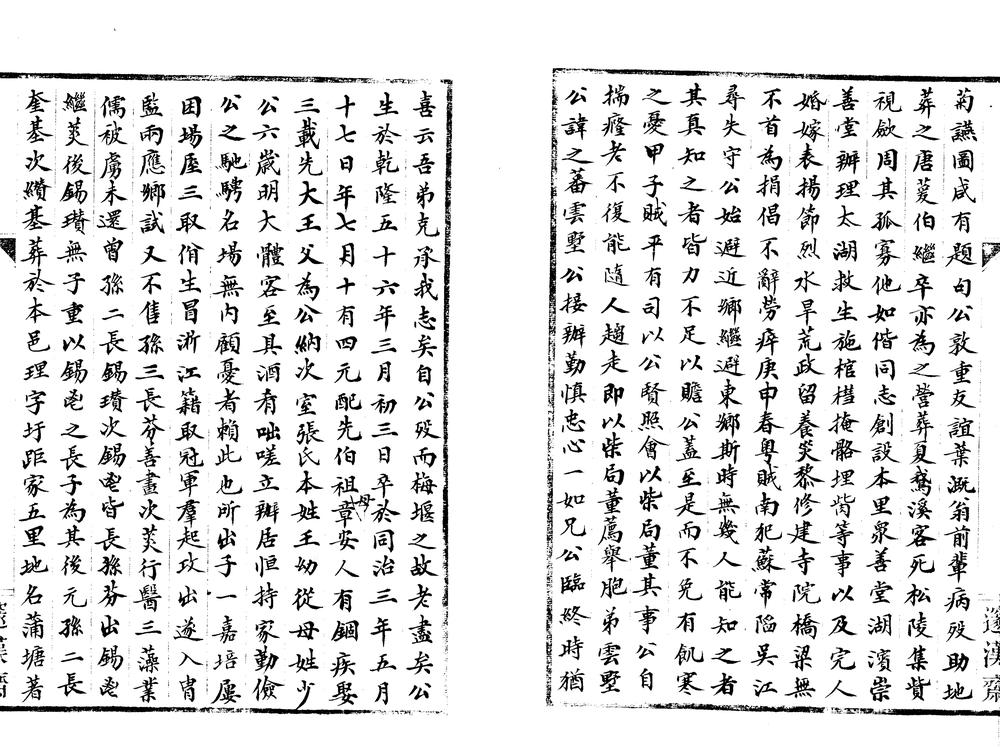 菊讌圖咸有題句公敦重友誼葉溉翁前輩病歿助地
葬之唐蔆伯繼卒亦為之營葬夏鵞溪客死松陵集貲
視歛周其孤寡他如偕同志創設本里衆善堂湖濱崇
善堂辦理太湖救生施棺槥掩骼埋胔等事以及完人
婚嫁表揚節烈水旱荒政留養災黎修建寺院橋梁無
不首為捐倡不辭勞瘁庚申春粵賊南犯蘇常陷吳江
尋失守公始避近鄉繼避東鄉斯時無幾人能知之者
其真知之者皆力不足以贍公蓋至是而不免有飢寒
之憂甲子賊平有司以公賢照會以柴局董其事公自
揣癃老不復能隨人趨走即以柴局董薦舉胞弟雲墅
公諱之蕃雲墅公接辦勤慎忠心一如兄公臨終時猶
喜云吾弟克承我志矣自公歿而梅堰之故老盡矣公
生於乾隆五十六年三月初三日卒於同治三年五月
十七日年七十有四元配先伯祖母章安人有錮疾娶
三載先大王父為公納次室張氏本姓王幼從母姓少
公六歲明大體客至具酒肴咄嗟立辦居恒持家勤儉
公之馳騁名場無內顧憂者賴此也所出子一嘉培屢
困場屋三取佾生冒浙江籍取冠軍羣起攻出遂入胄
監兩應鄉試又不售孫三長芬善畫次葓行醫三藻業
儒被虜未還曾孫二長錫瓚次錫鬯皆長孫芬出錫鬯
繼葓後錫瓚無子重以錫鬯之長子為其後元孫二長
奎基次纘基葬於本邑理字圩距家五里地名蒲塘著
邃漢齋